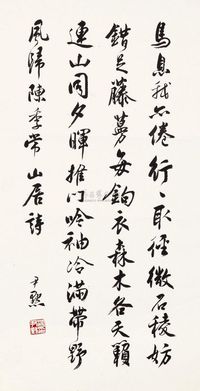 馬息我亦倦行行取徑微石稜妨
錯足藤蔓每鉤衣森木各天籟
連山同夕暉推門吟袖冷滿帶野
風歸陳季常山居詩
尹默